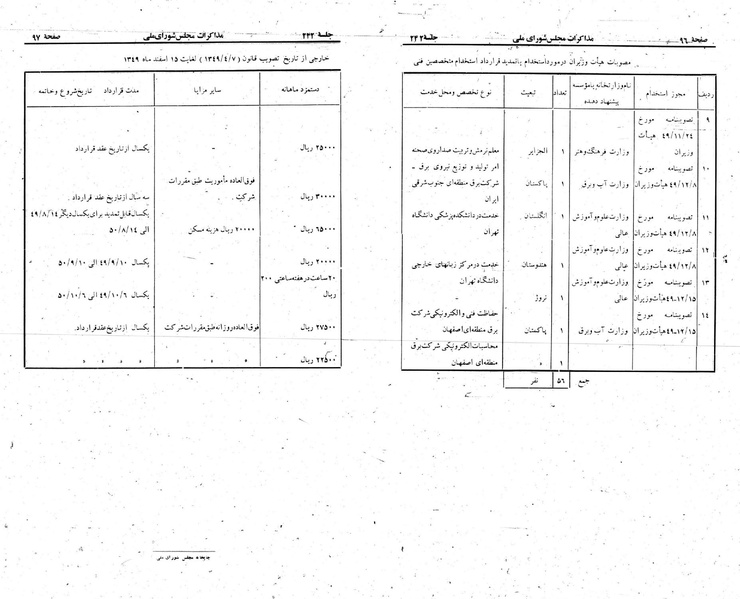 صفحهٔ ۹۶
مذاکرات مجلس شورای ملی
جلسهٔ ۲۴۲
مصوبات هیأت وزیران در مورد استخدام یا تمدید قرارداد استخدام متخصصین فنی
ردیف
مجوز استخدام
نام وزارتخانه یا مؤسسه پیشنهاد دهنده
تعداد
تبعیت
نوع تخصص و محل خدمت
۹
تصویبنامه مورخ
۴۹/۱۱/۲۴ هیأت
وزیران
وزارت فرهنگ و هنر
۱
الجزایر
معلم نرمش و تربیت صدا روی صحنه
۱۰
تصویبنامه مورخ
۴۹/۱۲/۸ هیأت وزیران
وزارت آب و برق
۱
پاکستان
امر تولید و توزیع نیروی برق -
شرکت برق منطقه‌ای جنوب شرقی
ایران
۱۱
تصویبنامه مورخ
۴۹/۱۲/۸ هیأت وزیران
وزارت علوم و آموزش
عالی
۱
انگلستان
خدمت در دانشکده پزشکی دانشگاه
تهران
۱۲
تصویبنامه مورخ
۴۹/۱۲/۸ هیأت وزیران
وزارت علوم و آموزش
عالی
۱
هندوستان
خدمت در مرکز زبانهای خارجی
دانشگاه تهران
۱۳
تصویبنامه مورخ
۴۹-۱۲/۱۵ هیأت وزیران
وزارت علوم و آموزش
عالی
۱
نروژ
-
۱۴
تصویبنامه مورخ
۴۹-۱۲/۱۵ هیأت وزیران
وزارت آب و برق
۱
پاکستان
حفاظت فنی و الکترونیکی شرکت
برق منطقه‌ای اصفهان
محاسبات الکترونیکی شرکت برق
۱
منطقه‌ای اصفهان
جمع
۵۶
نفر
جلسهٔ ۲۴۲
مذاکرات مجلس شورای ملی
صفحهٔ ۹۷
خارجی از تاریخ تصویب قانون (۱۳۴۹/۴/۷) لغایت ۱۵ اسفند ماه ۱۳۴۹
دستمزد ماهانه
سایر مزایا
مدت قرارداد تاریخ شروع و خاتمه
۲۵۰۰۰ ریال
-
یکسال از تاریخ عقد قرارداد
فوق‌العاده مأموریت طبق مقررات
۳۰۰۰۰ ریال
شرکت.
سه سال از تاریخ عقد قرارداد.
یکسال قابل تمدید برای یکسال دیگر ۴۹/۸/۱۴
۶۵۰۰۰ ریال
۲۰۰۰۰ ریال هزینه مسکن
الی ۵۰/۸/۱۴
۲۰۰۰۰ ریال
-
یکسال ۴۹/۹/۱۰ الی ۵۰/۹/۱۰
۲۰ ساعت در هفته ساعتی ۲۰۰
ریال
-
یکسال ۴۹/۱۰/۶ الی ۵۰/۱۰/۶
۲۷۵۰۰ ریال
فوق‌العاده روزانه طبق مقررات شرکت
یکسال از تاریخ عقد قرارداد.
۲۲۵۰۰ ریال
چاپخانه مجلس شورای ملی